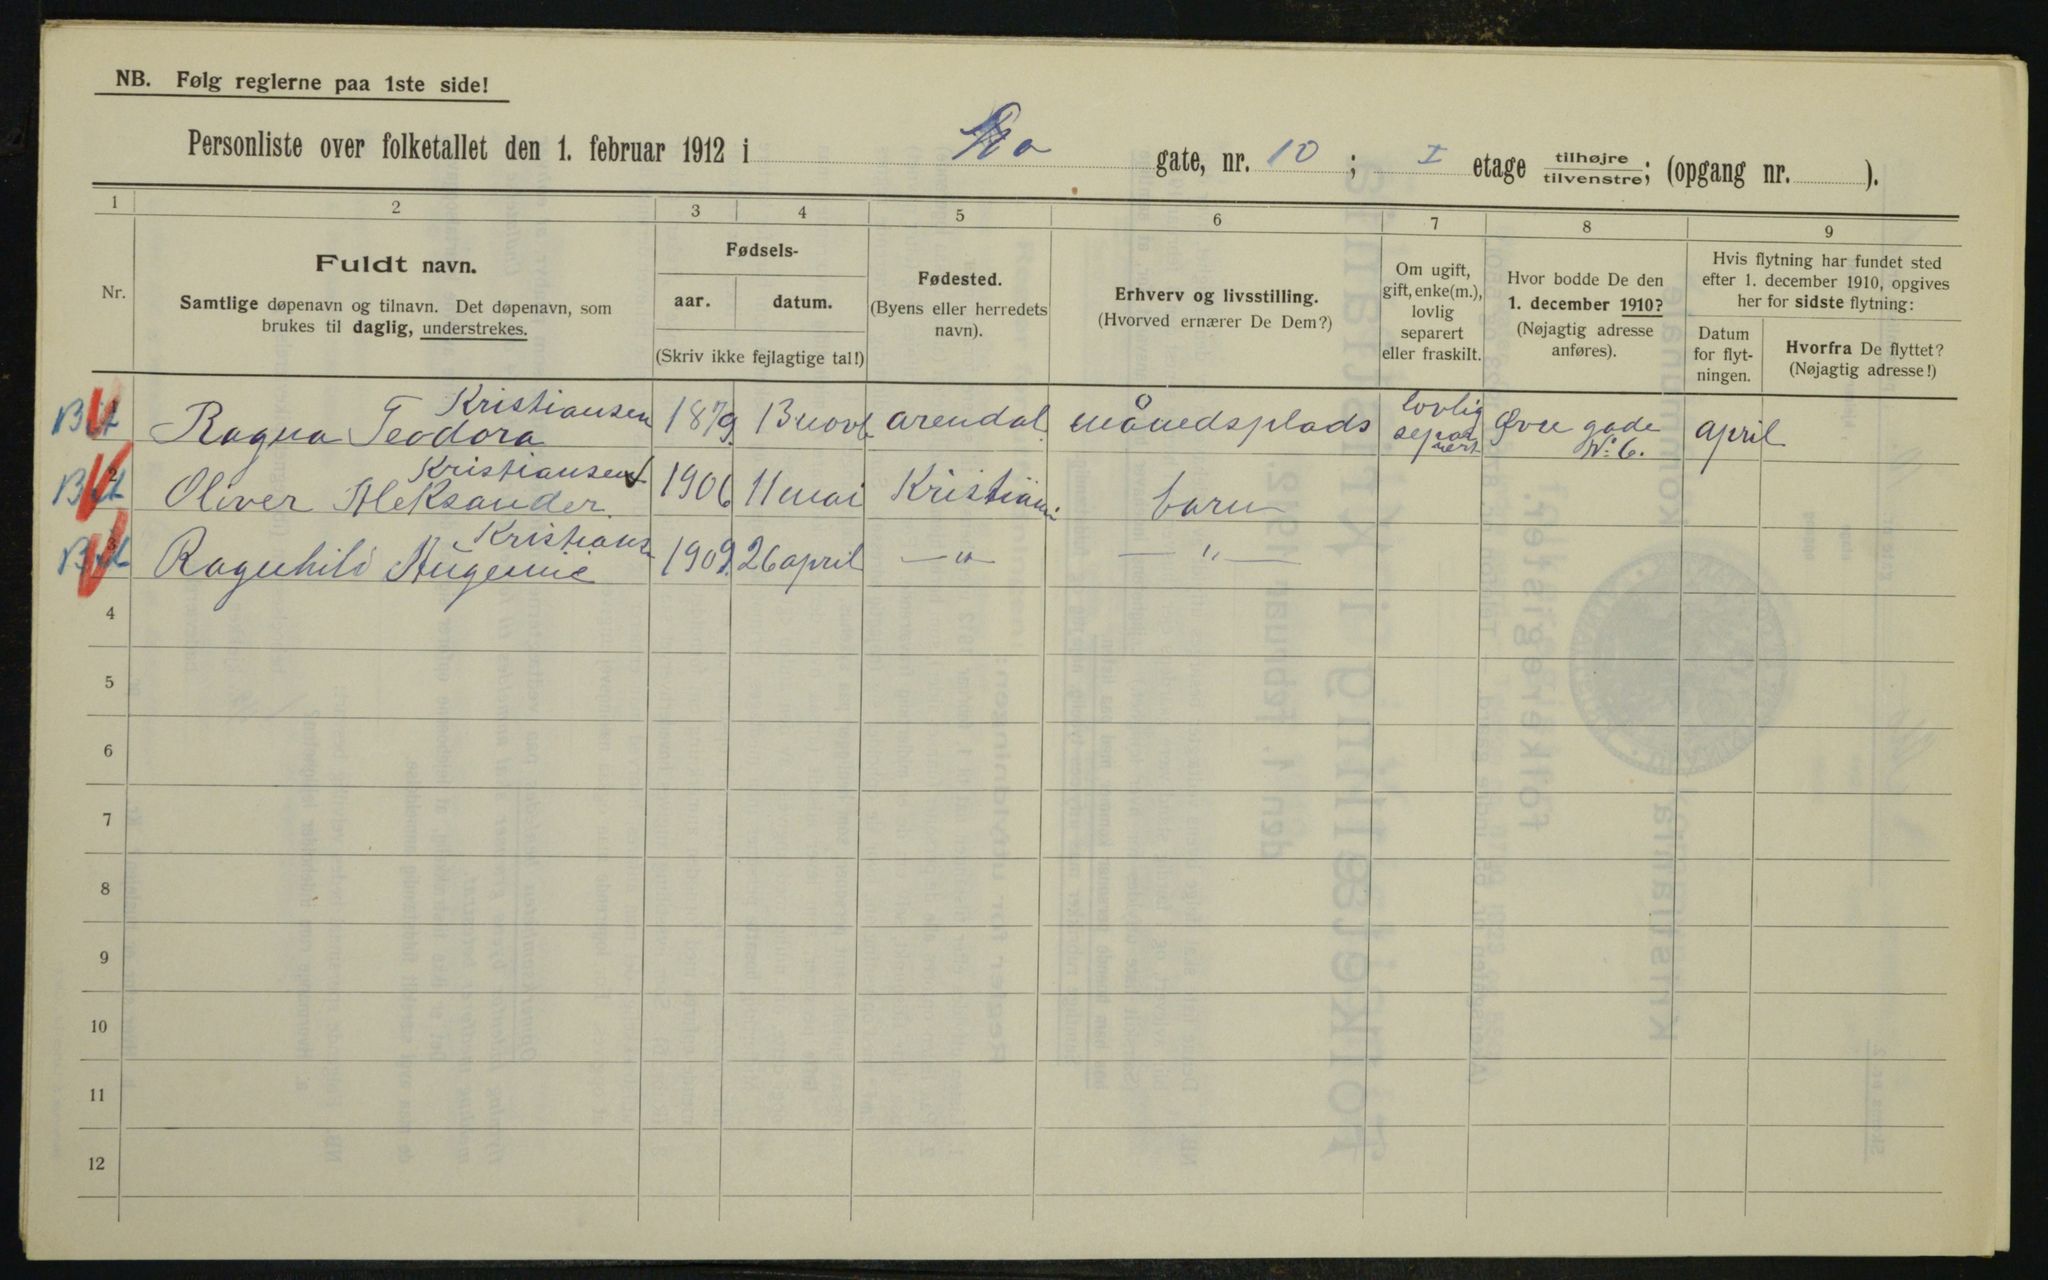 NB. Følg reglerne paa 1ste side!
Personliste over folketallet den 1. februar 1912 i gate, nr. 10; I etage tilhøjre tilvenstre; (opgang nr. ).
1 2 3 4 5 6 7 8 9
Nr.
Fuldt navn.
Samtlige døpenavn og tilnavn. Det døpenavn, som
brukes til daglig, understrekes.
Fødsels-
aar. datum.
(Skriv ikke fejlagtige tal!)
Fødested.
(Byens eller herredets
navn).
Erhverv og livsstilling.
(Hvorved ernærer De Dem?)
Om ugift,
gift, enke(m.),
lovlig
separert
eller fraskilt.
Hvor bodde De den
1. december 1910?
(Nøjagtig adresse
anføres).
Hvis flytning har fundet sted
efter 1. december 1910, opgives
her for sidste flytning:
Datum
for flyt-
ningen.
Hvorfra De flyttet?
(Nøjagtig adresse!)
Kristiansen
Ragna Teodora 1879. 13 novb arendal. månedsplads lovlig separert Øvre gade No 6. april
2 Kristiansen
Oliver Aleksander. 1906 11 mai Kristiania barn
3 Kristians
Ragnhild 1909. 26 april —"— —"—
4
5
6
7
8
9
10
11
12